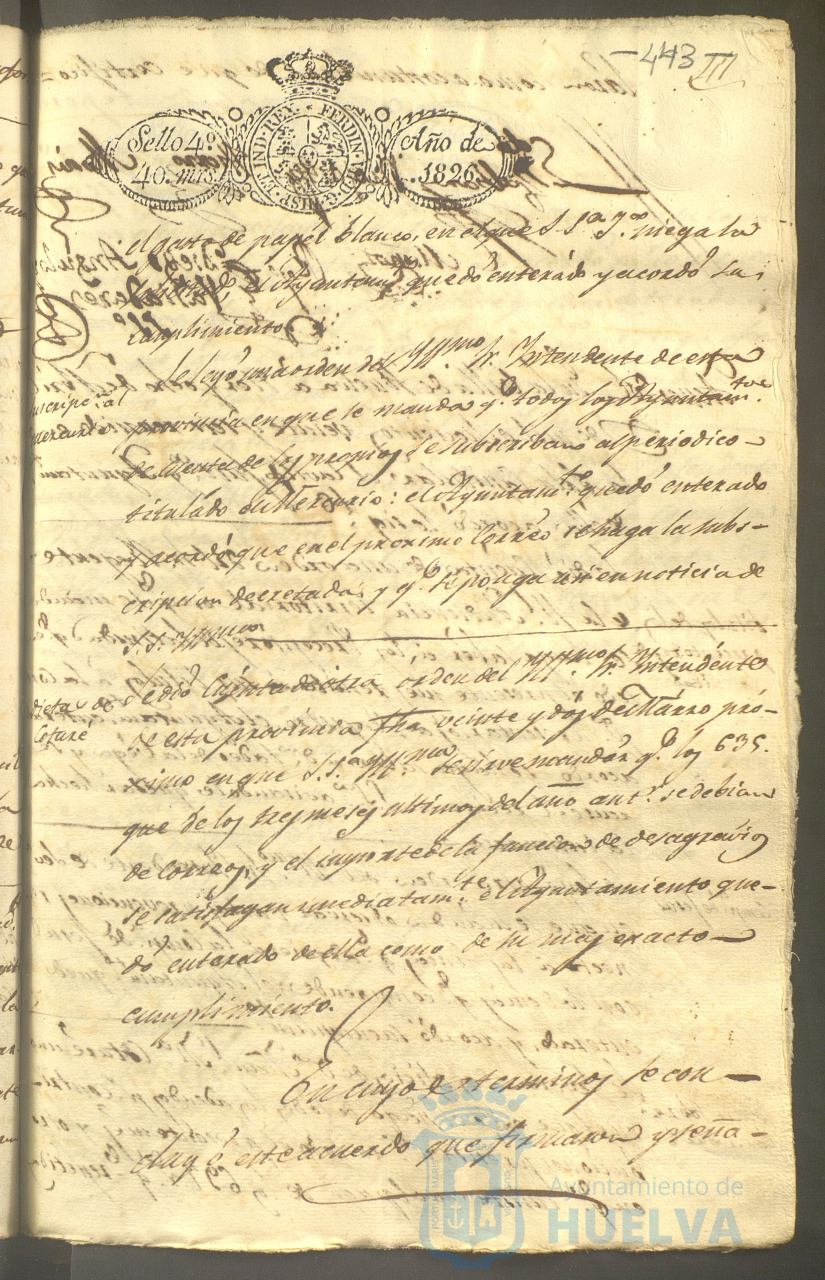 -443 III
Sello 4º
40. mrs.
HISP. ET IND. REY. FERDIN. VII. D. G.
Año de
1826
el gasto de papel blanco, en el que S. Sª Yª niega la
el Ayuntamº quedó enterado y acordó su
cumplimiento
Se leyó una orden del Yllmo Sr. Yntendente de esta
provincia en que se manda q.e todos los Ayuntam.tos
de cuenta de los propios se subscriban al periodico
titulado el Mercurio: el Ayuntam.to quedó enterado
y acordó que en el proximo correo se haga la subs-
cripcion decretada, y q.e se ponga en noticia de
S. S. Yllma
Se dió cuenta de otra orden del Yllmo Sr. Yntendente
de esta provincia fha veinte y dos de Marzo pró-
ximo en que S. Sª Yllma se sirve mandar q.e los 635.
que de los tres meses ultimos del año ant.r se debian
de correo, y el importe de la funcion de desagravios
se satisfagan inmediatam.te el Ayuntamiento que-
dó enterado de ella como de su mas exacto
cumplimiento.
En cuyos terminos se con-
cluyó este acuerdo que firmaron y seña-
Ayuntamiento de
HUELVA